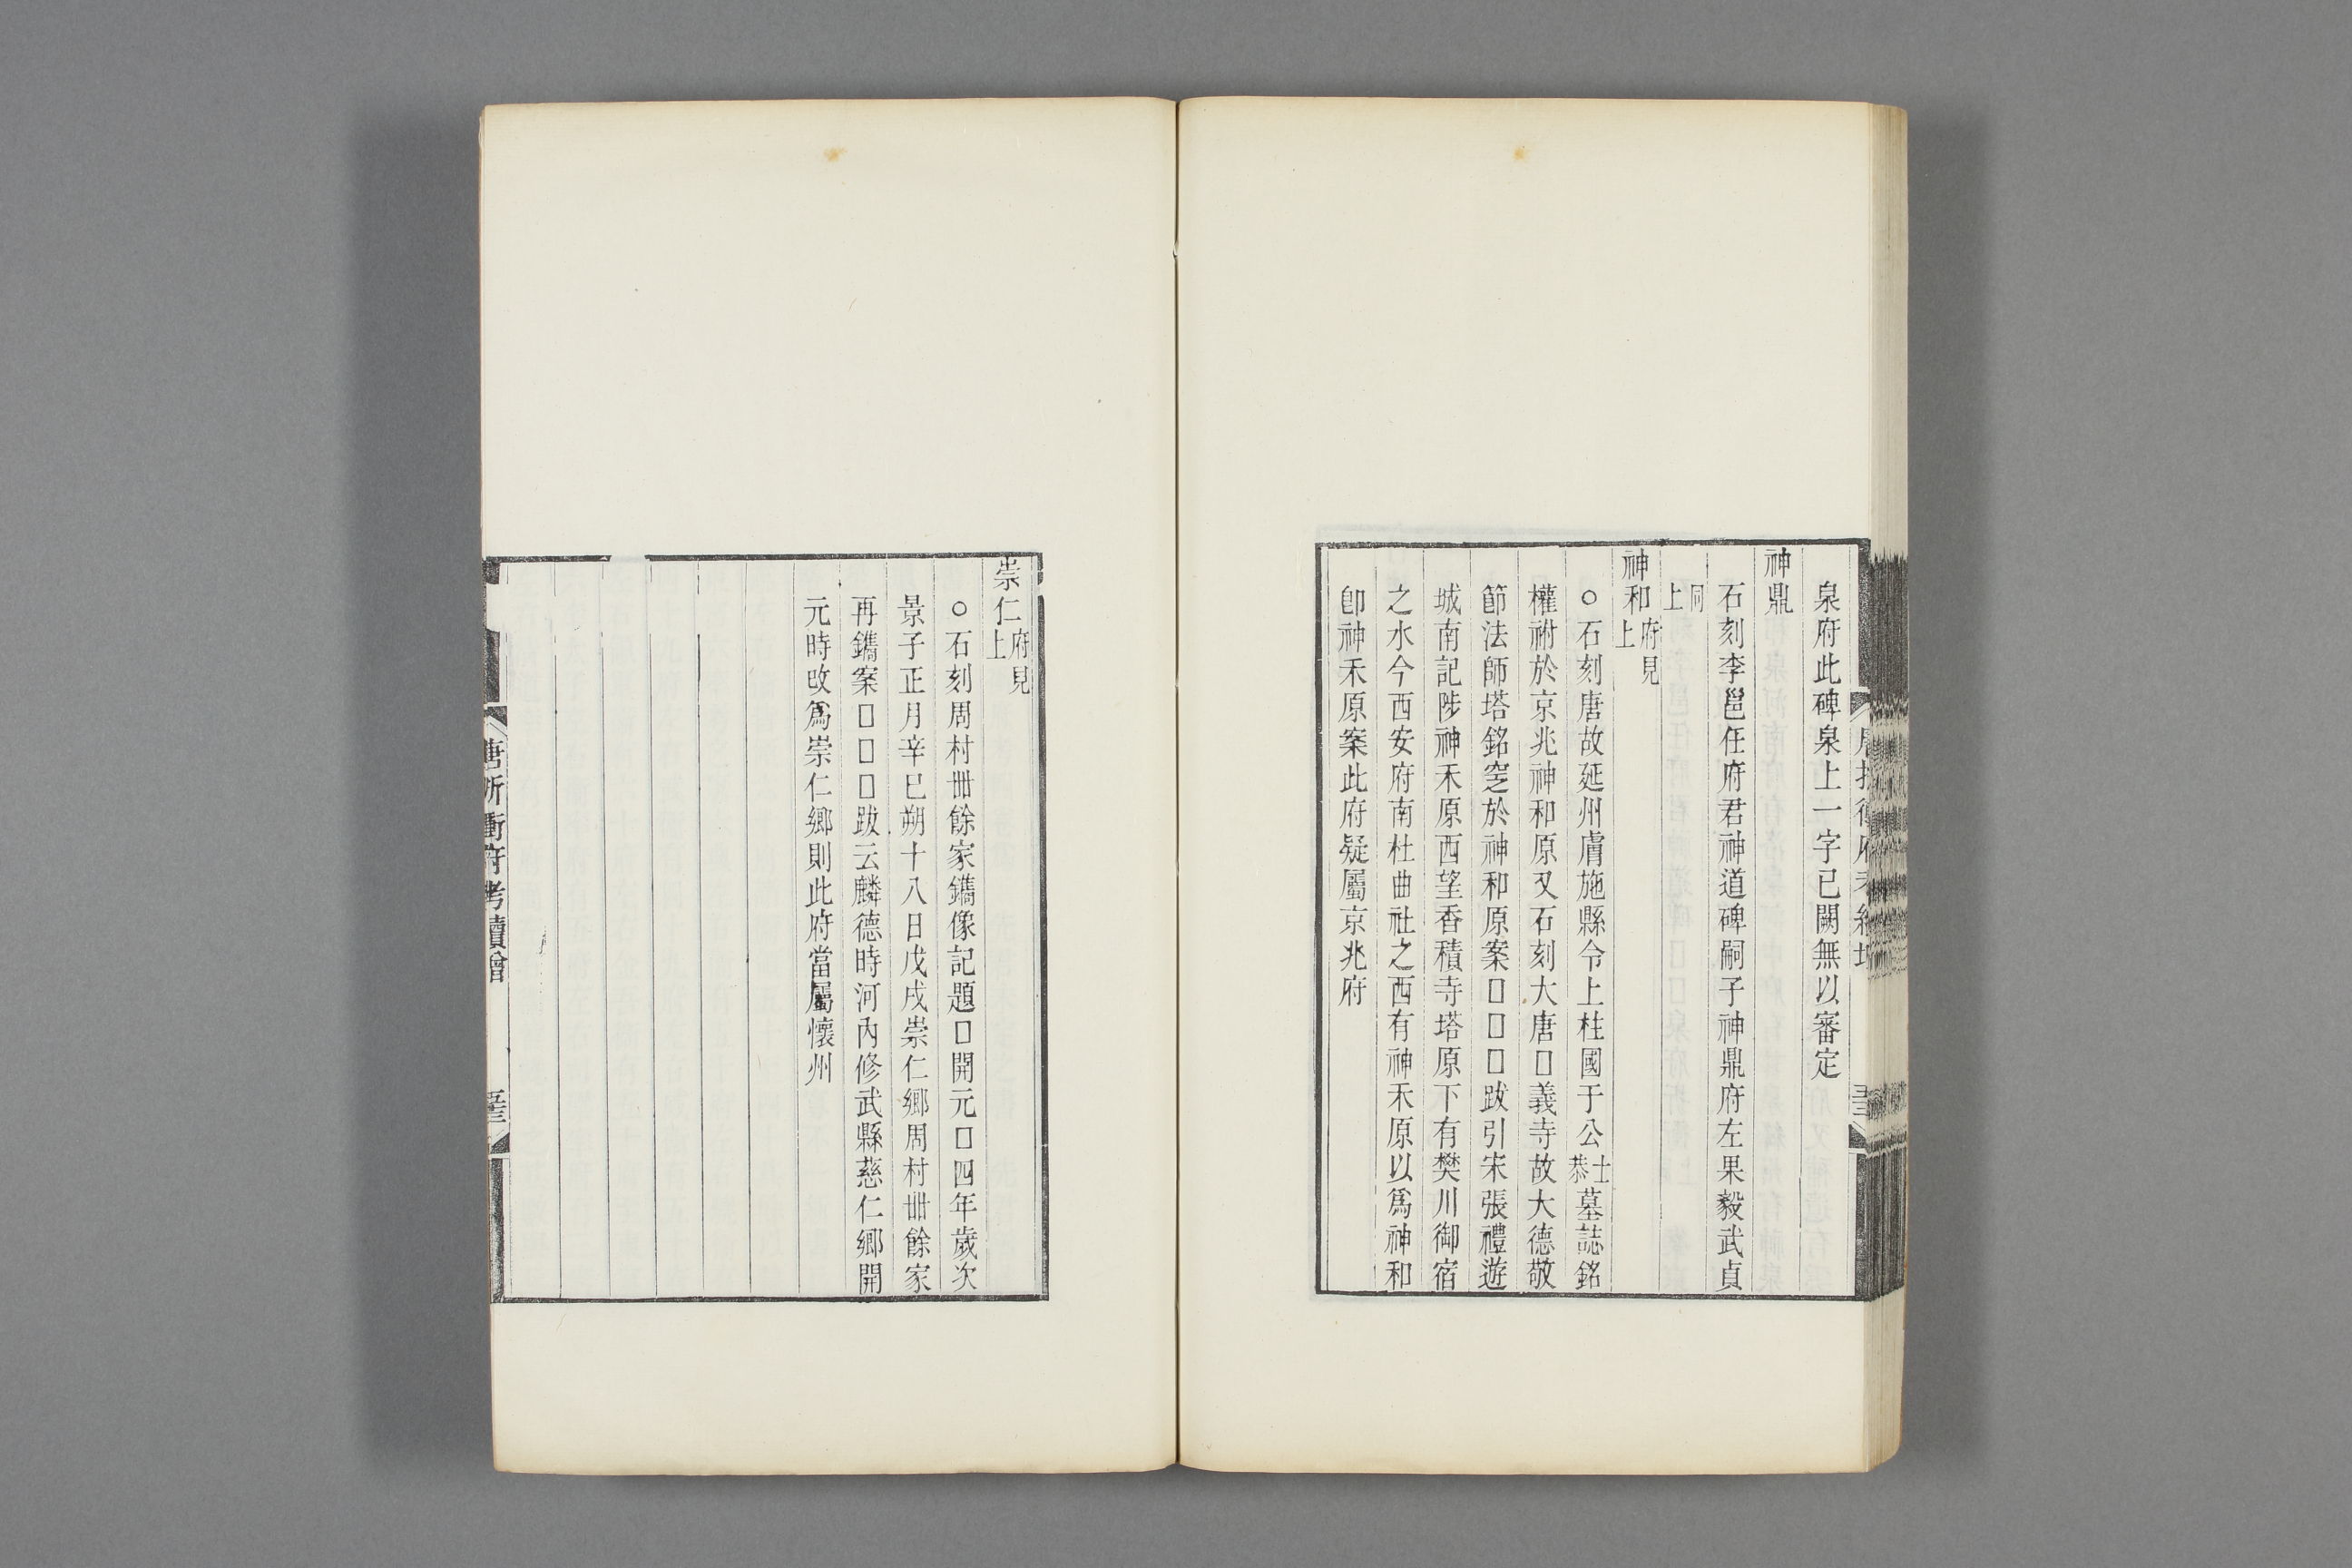 泉府此碑泉上一字已闕無以審定
神鼎
石刻李邕任府君神道碑嗣子神鼎府左果毅武貞
同上
神和府見上
○石刻唐故延州膚施縣令上柱國于公士恭墓誌銘
權祔於京兆神和原又石刻大唐□義寺故大德敬
節法師塔銘窆於神和原案□□□跋引宋張禮遊
城南記陟神禾原西望香積寺塔原下有樊川御宿
之水今西安府南杜曲社之西有神禾原以爲神和
卽神禾原案此府疑屬京兆府
崇仁府見上
○石刻周村卌餘家鐫像記題□開元□四年歲次
景子正月辛巳朔十八日戊戌崇仁鄉周村卌餘家
再鐫案□□□跋云麟德時河內修武縣慈仁鄉開
元時改爲崇仁鄉則此府當屬懷州
唐折衝府考續增